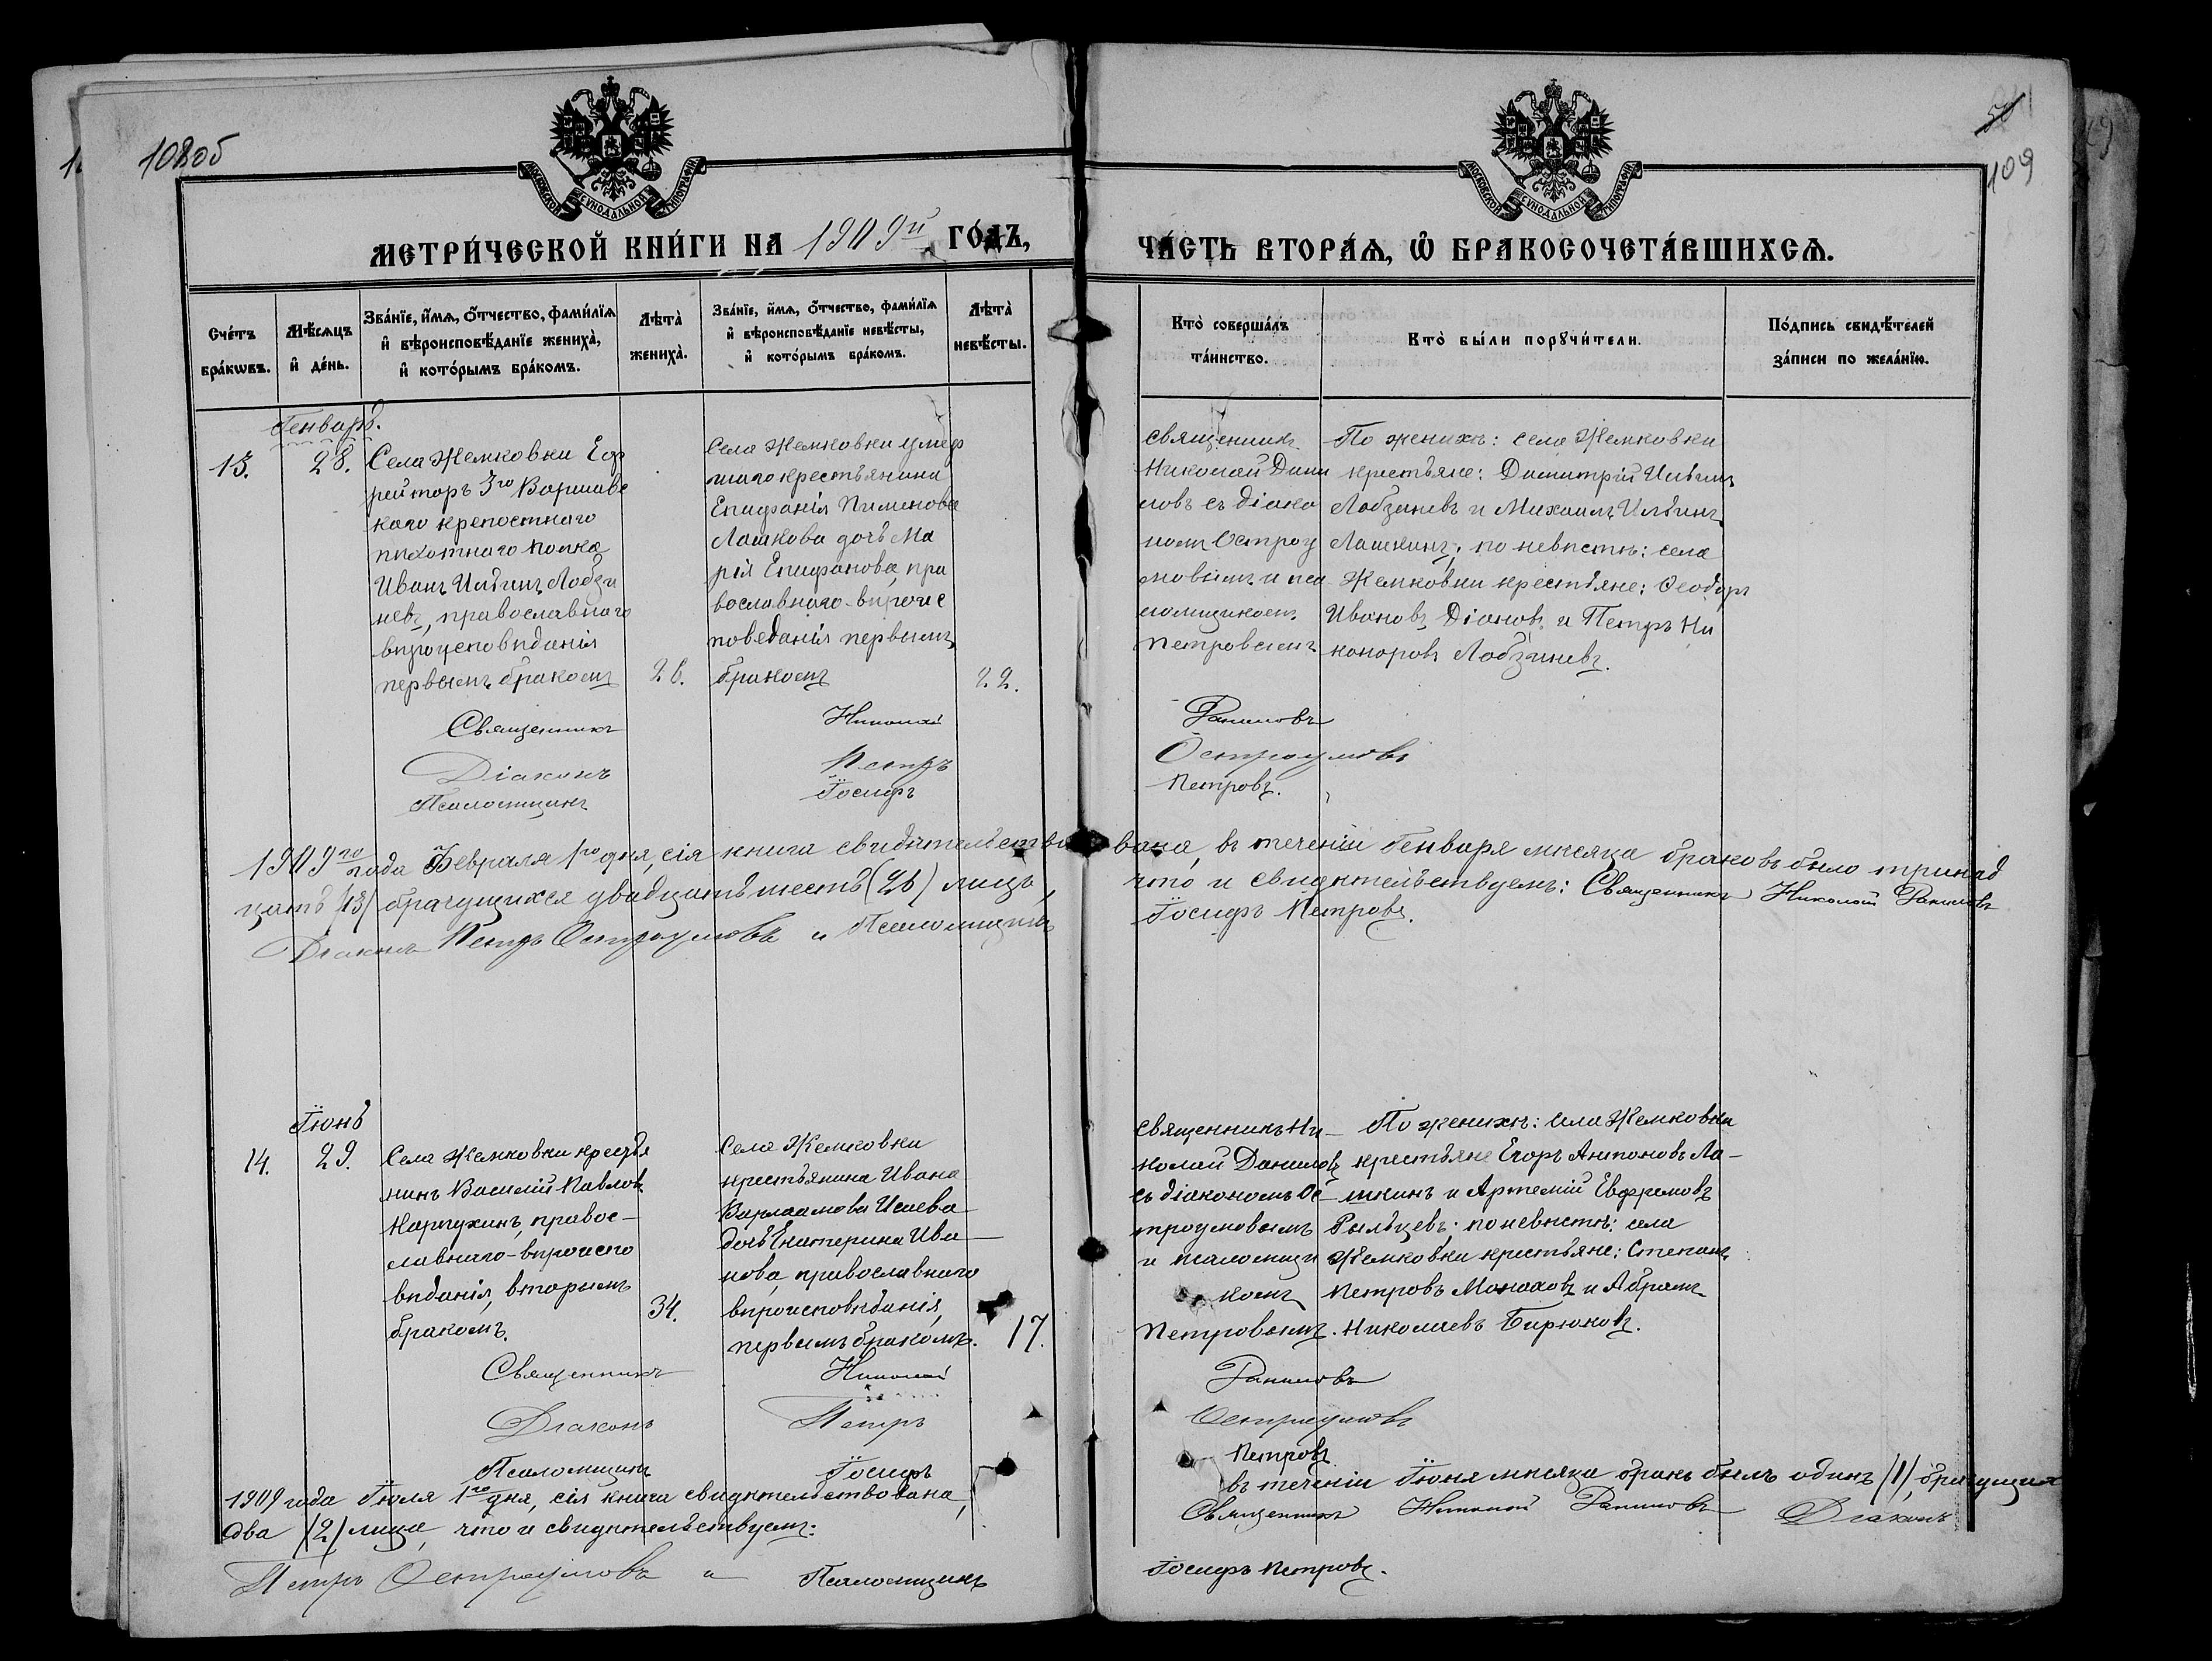 108об
109
МОСКОВСКОЙ СѴНОДАЛЬНОЙ ТИПОГРАФІИ
МОСКОВСКОЙ СѴНОДАЛЬНОЙ ТИПОГРАФІИ
МЕТРИ́ЧЕСКОЙ КНИ́ГИ НА 1909й ГО́ДЪ,
ЧА́СТЬ ВТОРА́Ѧ, Ѡ҆ БРАКОСОЧЕТА́ВШИХСѦ.
Сче́тъ
бра́кѡвъ.
Мѣ́сѧцъ
и҆ де́нь.
Зва́нїе, и҆́мѧ, ѻ҆́тчество, фами́лїѧ
и҆ вѣроисповѣ́данїе жениха̀,
и҆ кото́рымъ бра́комъ.
Лѣта̀
жениха̀.
Зва́нїе, и҆́мѧ, ѻ҆́тчество, фами́лїѧ
и҆ вѣроисповѣ́данїе невѣ́сты,
и҆ кото́рымъ бра́комъ.
Лѣта̀
невѣ́сты.
Кто̀ соверша́лъ
та́инство.
Кто̀ бы́ли порꙋчи́тели.
По́дпись свидѣ́телей
за́писи по жела́нїю.
Генварь.
13.
28.
Села Жемковки Еф
рейторъ 3го Варшавс
каго крепостного
пихотнаго полка
Иванъ Ильинъ Лобзи
невъ, православнаго
вѣроисповѣданія
первымъ бракомъ
26.
Села Жемковки умер
шаго крестьянина
Епифанія Пименова
Лашкова дочь Ма
рія Епифанова, пра
вославнаго вѣроис
поведанія первымъ
бракомъ
22.
Священникъ
Николай Дани
ловъ съ діако
номъ Остроу
мовымъ и пса
ломщикомъ
Петровымъ
По женихѣ: села Жемковки
крестьяне: Димитрій Ильинъ
Лобзиневъ и Михаилъ Ильинъ
Лашкинъ; по невѣстѣ: села
Жемковки крестьяне: Ѳеодоръ
Ивановъ Діановъ и Петръ Ни
каноровъ Лобзиневъ.
Священникъ Николай Даниловъ
Діаконъ Петръ Остроумовъ
Псаломщикъ Іосифъ Петровъ.
1909го года Февраля 1го дня, сія книга свидѣтельствована, въ теченіи Генваря мѣсяца браковъ было тринад
цать (13) брачущихся двадцать шесть (26) лицъ, что и свидѣтельствуемъ: Священникъ Николай Даниловъ
Діаконъ Петръ Остроумовъ и Псаломщикъ Іосифъ Петровъ.
Іюнь
14.
29.
Села Жемковки кресть
нинъ Василій Павловъ
Карпухинъ, правос-
лавнаго-вѣроиспо
вѣданія, вторымъ
бракомъ.
34.
Села Жемковки
крестьянина Ивана
Варлаамова Исаева
дочь Екатерина Ива-
нова, православнаго
вѣроисповѣданія,
первымъ бракомъ.
17.
Священникъ Ни-
колай Даниловъ
съ діакономъ Ос-
троумовымъ
и псаломщи
комъ
Петровымъ.
По женихѣ: села Жемковки
крестьяне Егоръ Антоновъ Ла-
шкинъ и Артемій Евфремовъ
Рыльцевъ; по невѣстѣ: села
Жемковки крестьяне: Степанъ
Петровъ Монаховъ и Абрамъ
Николаевъ Бирюковъ.
Священникъ Николай Даниловъ
Діаконъ Петръ Остроумовъ
Псаломщикъ Іосифъ Петровъ
1909 года Іюля 1го дня, сія книга свидѣтельствована, въ теченіи Іюня мѣсяца бракъ былъ одинъ (1), брачущихся
два (2) лица, что и свидѣтельствуемъ: Священникъ Николай Даниловъ Діаконъ
Петръ Остроумовъ и Псаломщикъ Іосифъ Петровъ.